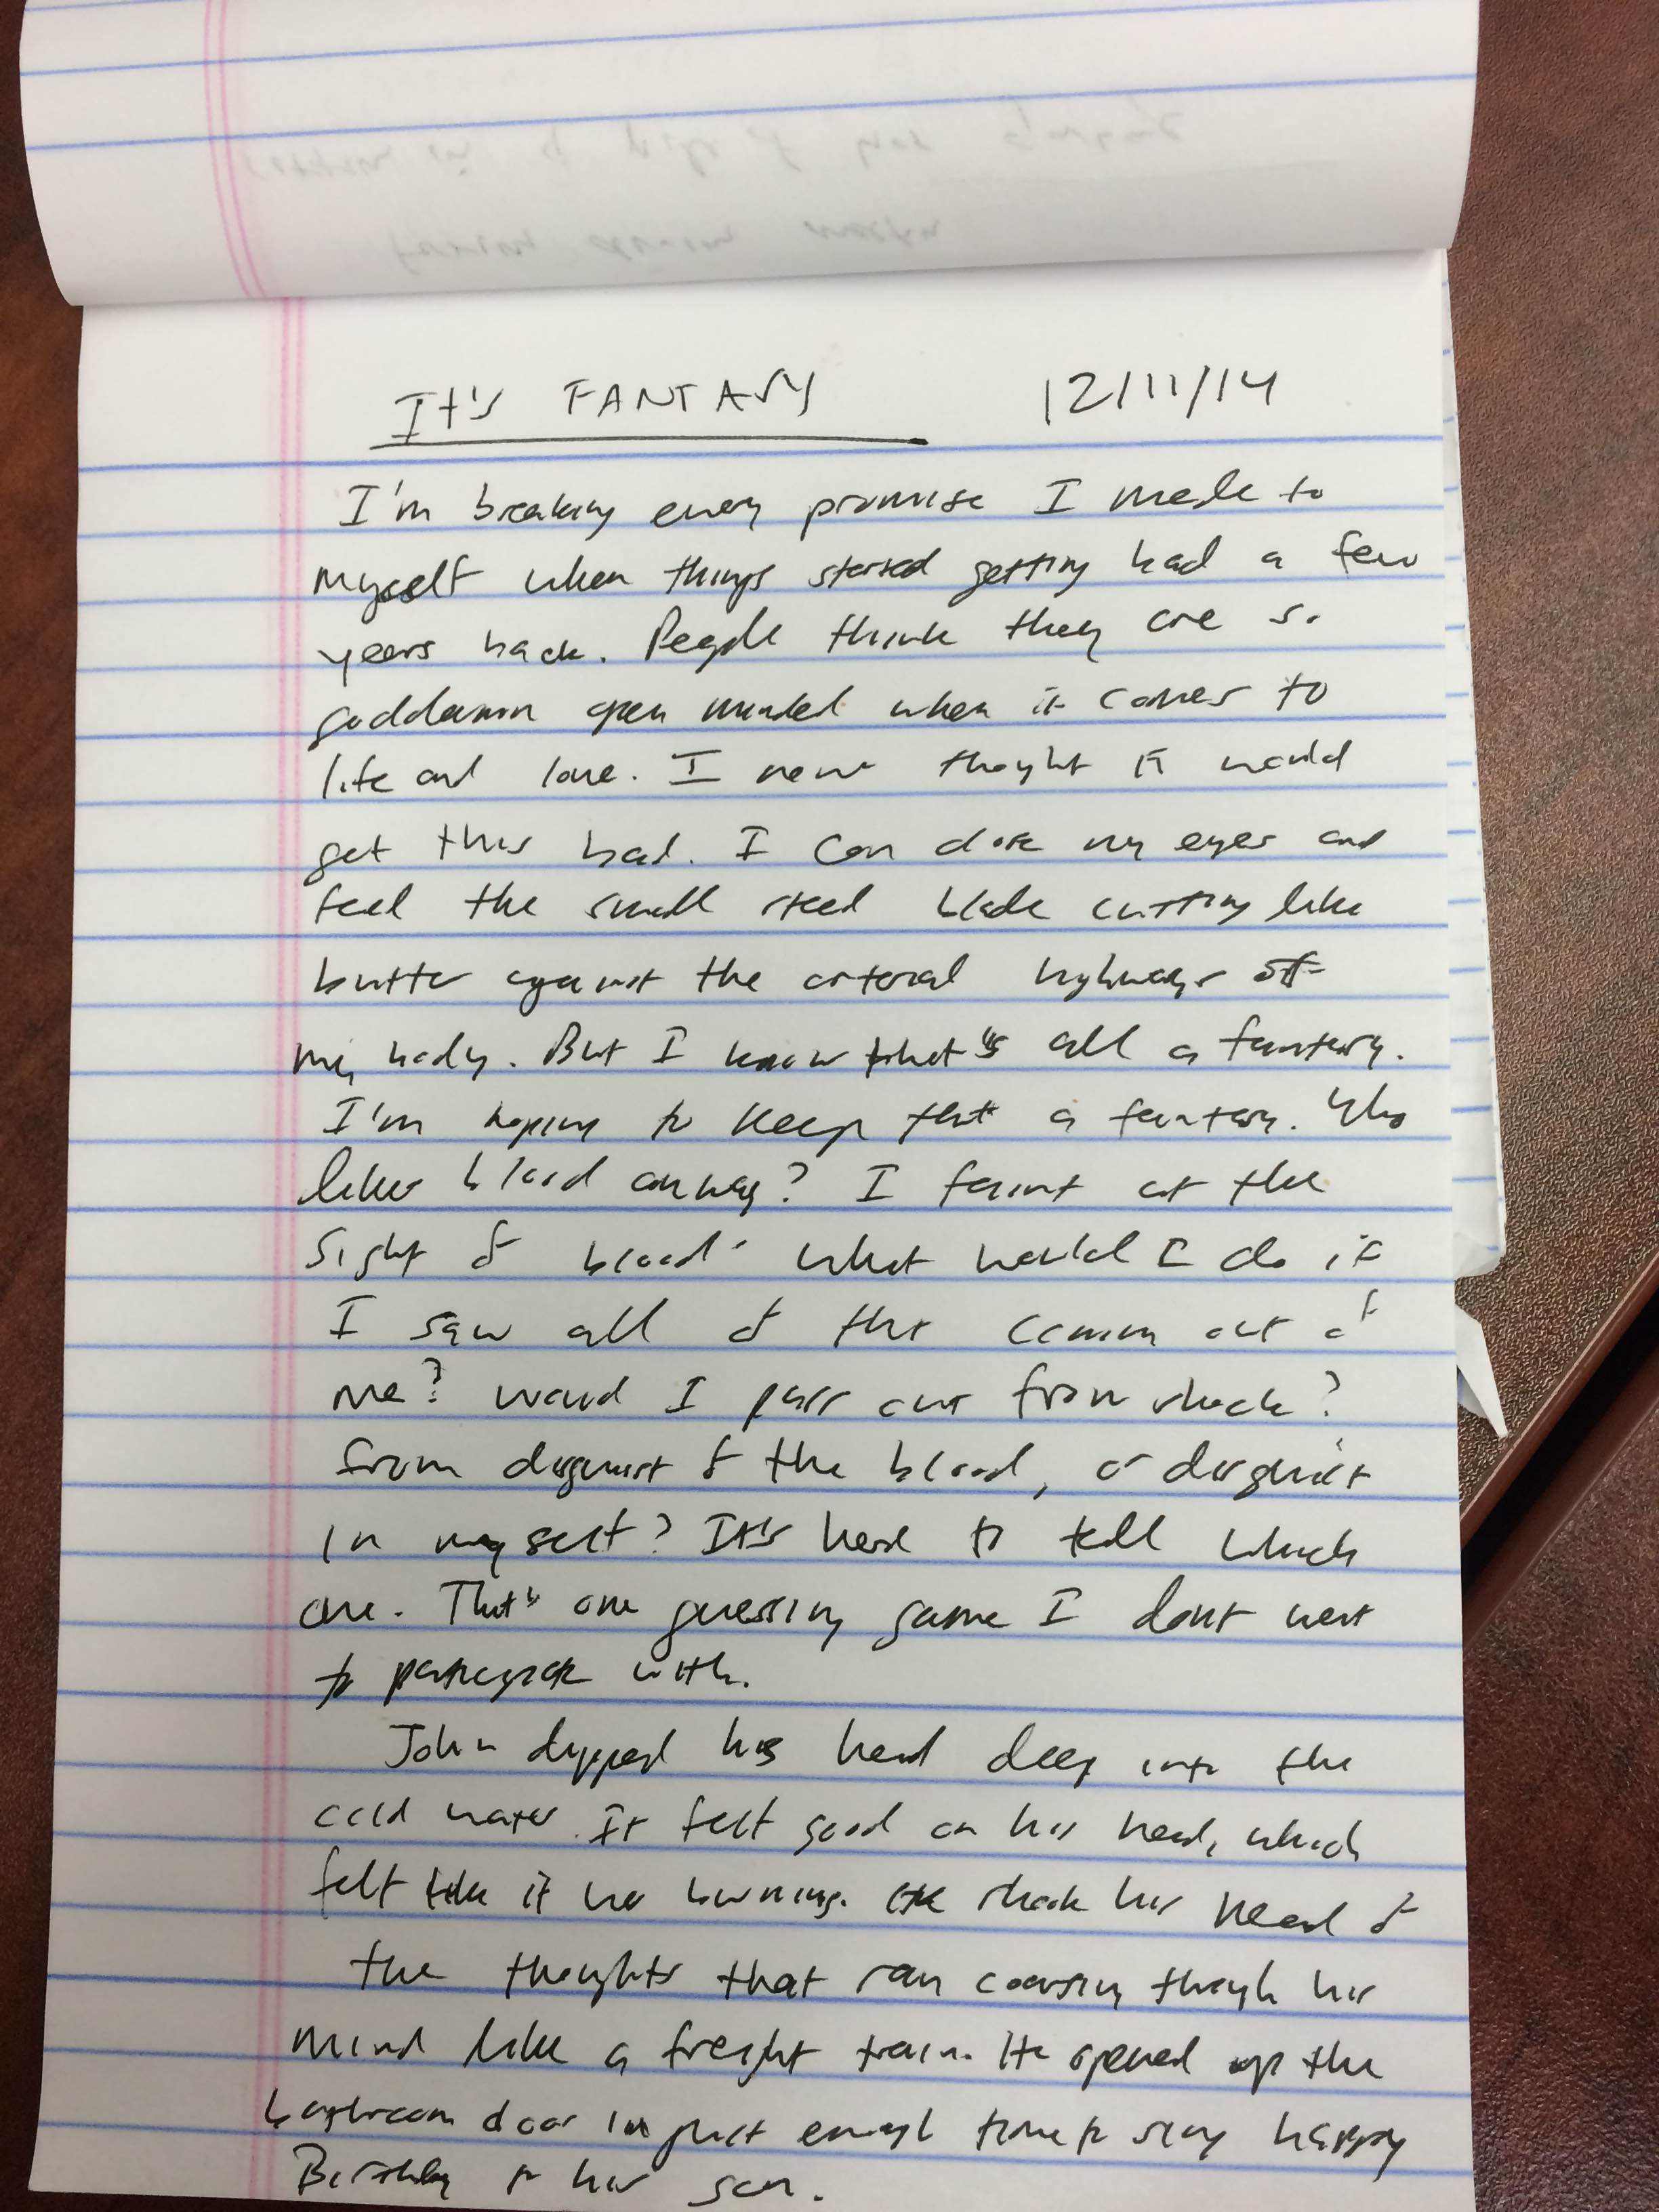 It's FANTASY 12/11/14
I'm breaking every promise I made to
myself when things started getting bad a few
years back. People think they are so
goddamn open minded when it comes to
life and love. I never thought it would
get this bad. I can close my eyes and
feel the small steel blade cutting like
butter against the arterial highways of
my body. But I know that's all a fantasy.
I'm hoping to keep that a fantasy. Who
likes blood anyway? I faint at the
sight of blood. What would I do if
I saw all of that coming out of
me? Would I pass out from shock?
From disgust of the blood, or disgust
in myself? It's hard to tell which
one. That's one guessing game I don't want
to participate with.
John dipped his head deep into the
cold water. It felt good on his head, which
felt like it was burning. He shook his head of
the thoughts that ran coursing through his
mind like a freight train. He opened up the
bathroom door in just enough time to sing happy
Birthday to his son.